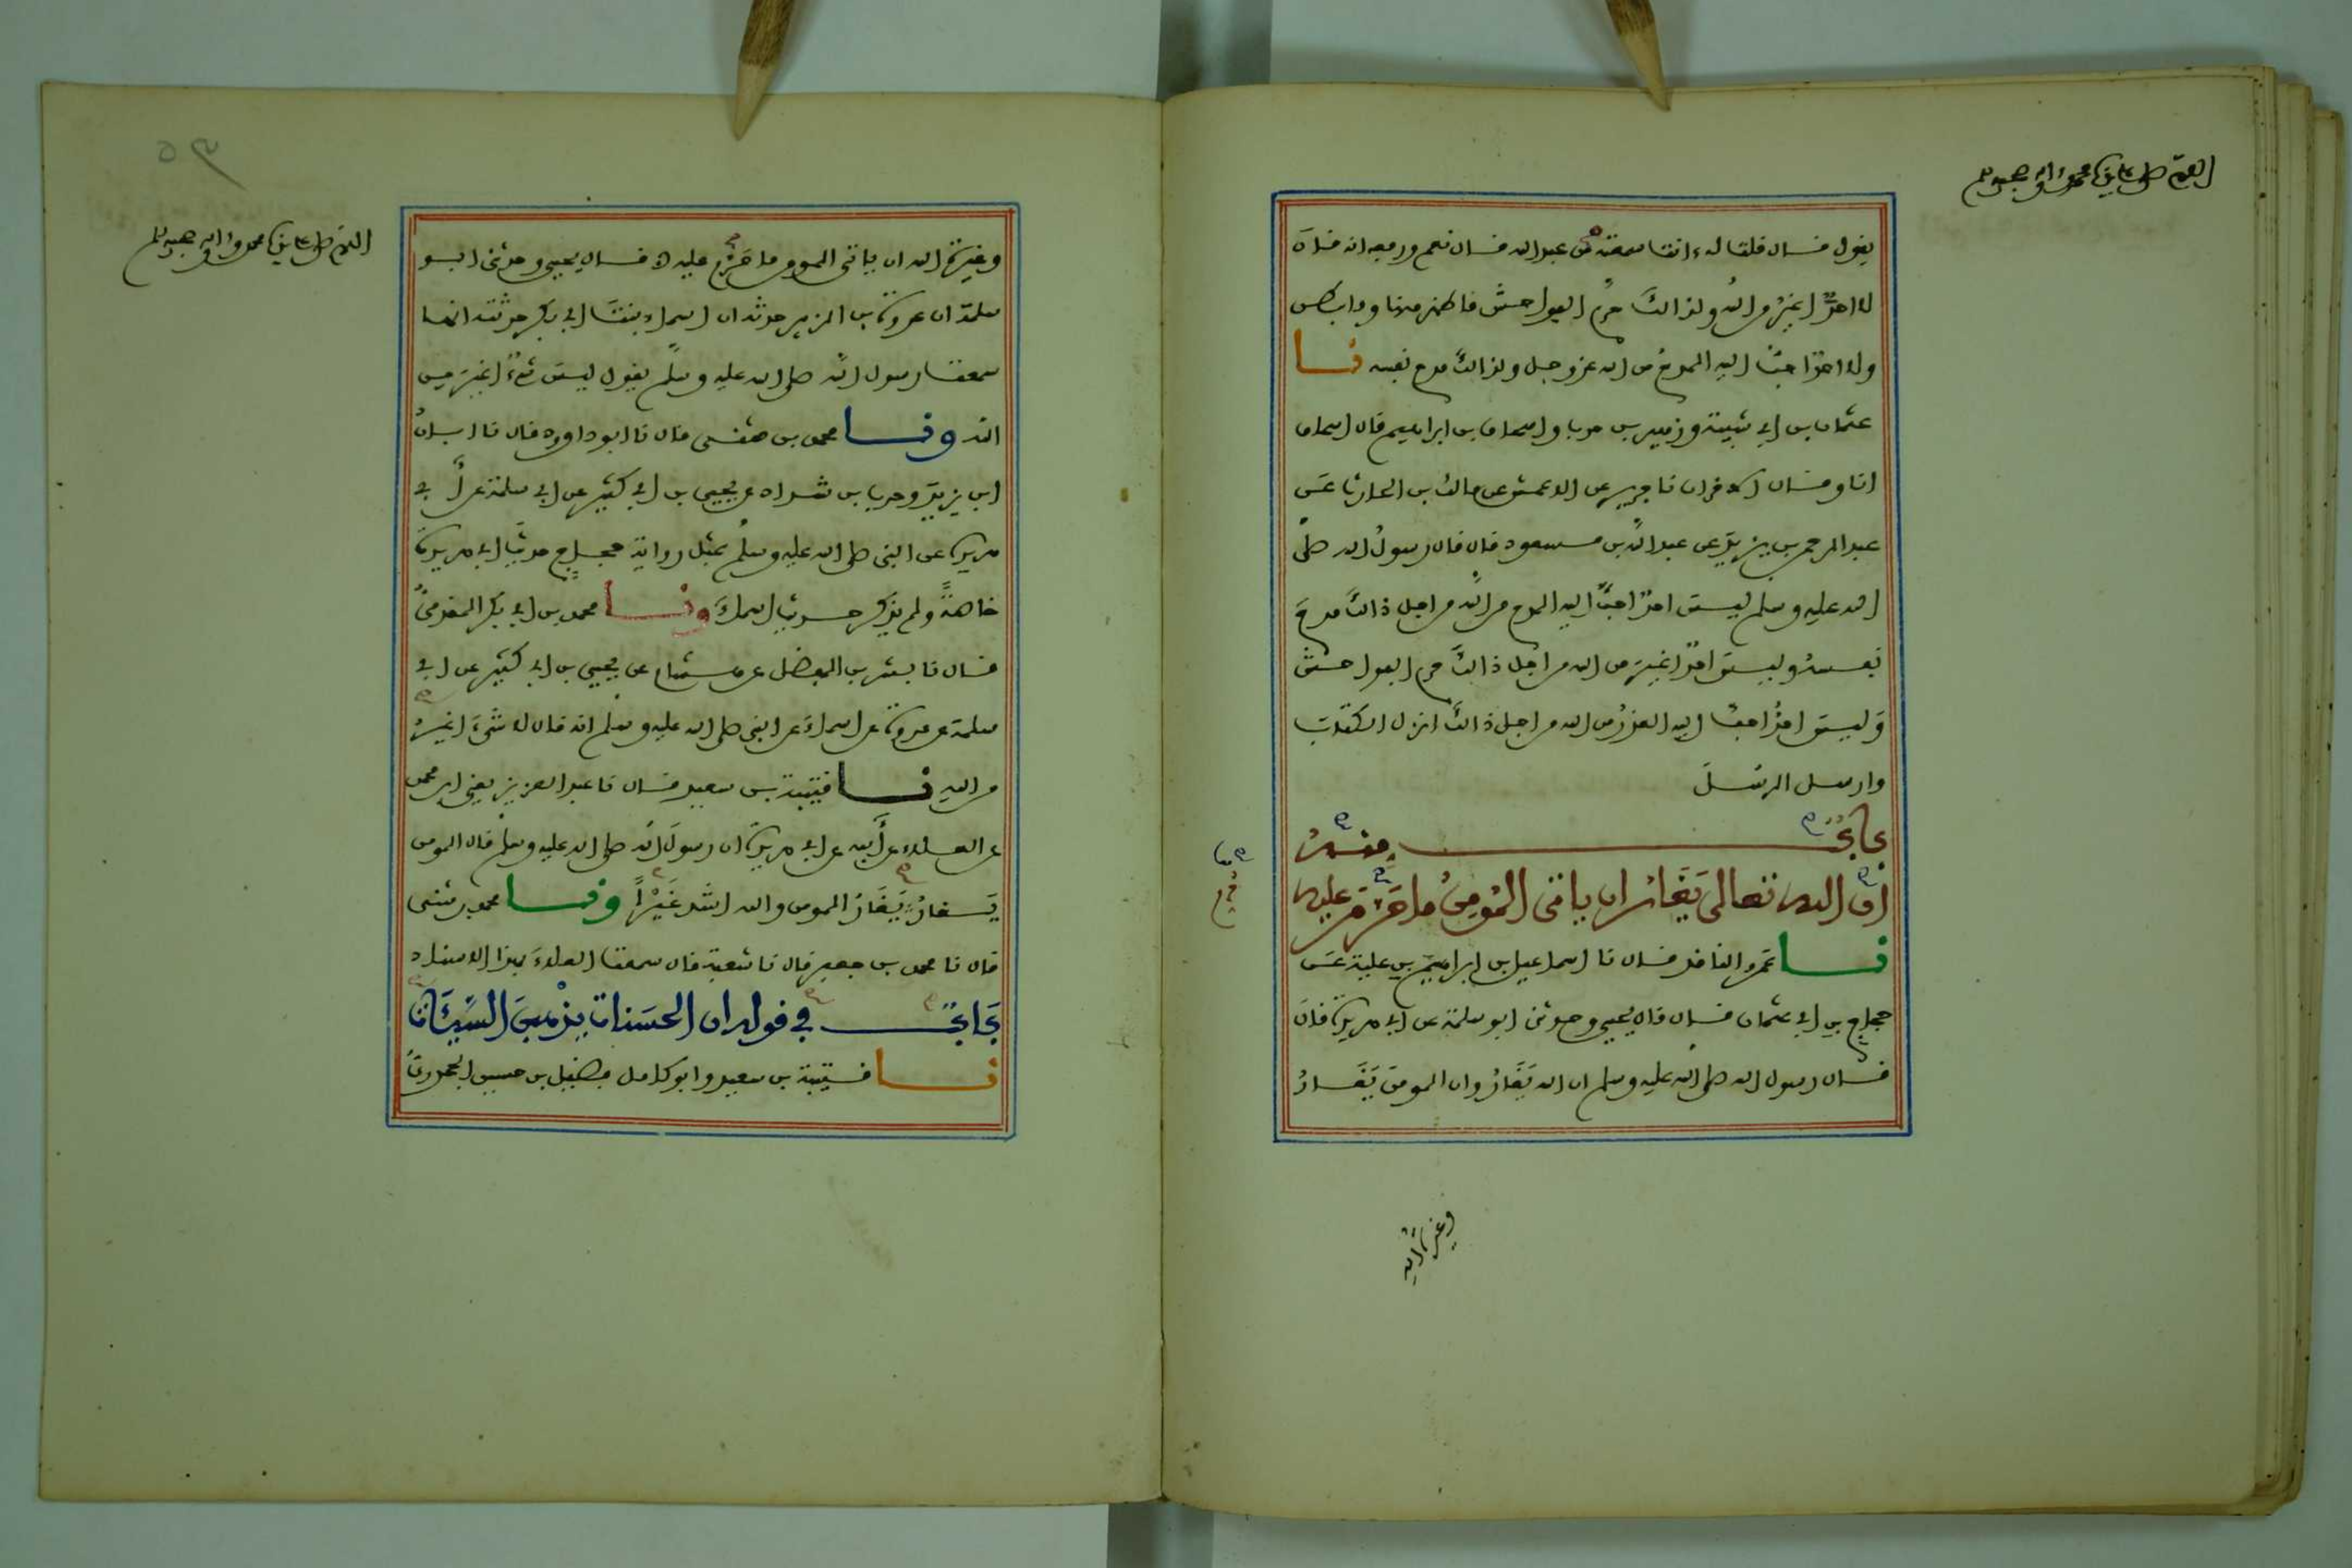 اللهم صل على سيدنا محمد وءاله وصحبه وسلم
يقول قال قلت له ءانت سمعته من عبد الله قال نعم ورفعه انه قال
لا احدٌ اغيرُ من الله ولذالك حرم الفواحش ما ظهر منها وما بطن
ولا احدٌ احبُّ اليه المدح من الله عز وجل ولذالك مدح نفسه نا
عثمان بن ابي شيبة وزهير بن حرب واسحاق بن ابراهيم قال اسحاق
انا وقال الاخران نا جرير عن الاعمش عن مالك بن الحارث عن
عبد الرحمن بن يزيد عن عبد الله بن مسعود قال قال رسول الله صلى
الله عليه وسلم ليس احدٌ احبُّ اليه المدح من الله من اجل ذالك مدح
نفسه وليس احدٌ اغيرَ من الله من اجل ذالك حرم الفواحش
وليس احدٌ احبُّ اليه العذرُ من الله من اجل ذالك انزل الكتاب
وارسل الرسل
بابٌ منه
ان الله تعالى يَغَارُ ان ياتى المُومِنُ ما حَرَّمَ عليه
نا عَمرو الناقد قال نا اسماعيل بن ابراهيم بن علية عن
حجاج بن ابي عثمان قال قال يحيى وحدثنى ابو سلمة عن ابي هريرة قال
قال رسول الله صلى الله عليه وسلم ان الله يَغَارُ وان المومن يَغَارُ
وغيرةُ الله
٥٣
اللهم صل على سيدنا محمد وءاله وصحبه وسلم
وغيرة الله ان ياتى المومن ما حَرَّم عليه قال يحيى وحدثنى ابو
سلمة ان عروة بن الزبير حدثه ان اسماء بنت ابي بكر حدثته انها
سمعت رسول الله صلى الله عليه وسلم يقول ليس شيءٌ اغيرَ من
الله ونا محمد بن مثنى قال نا ابو داوود قال نا ابان
ابن يزيد وحرب بن شداد عن يحيى بن ابي كثير عن ابي سلمة عن ابي
هريرة عن النبي صلى الله عليه وسلم بمثل رواية حجاج حديث ابي هريرة
خاصةً ولم يذكر حديث اسماءَ ونا محمد بن ابي بكر المقدميُّ
قال نا بشر بن المفضل عن هشام عن يحيى بن ابي كثير عن ابي
سلمة عن عروة عن اسماءَ عن النبي صلى الله عليه وسلم انه قال لا شىءَ اغيرُ
من الله نا قتيبة بن سعيد قال نا عبد العزيز يعنى ابن محمد
عن العلاء عن أبيه عن ابي هريرة ان رسول الله صلى الله عليه وسلم قال المومن
يَغارُ يَغَارُ المومن والله اشد غَيْرًا ونا محمد بن مثنى
قال نا محمد بن جعفر قال نا شعبة قال سمعت العلاءَ بهذا الاسناد
بَابٌ في قوله ان الحَسَنات يذْهبن السَّيِّئَات
نا قتيبة بن سعيد وابو كامل فضيل بن حسين الجحدري